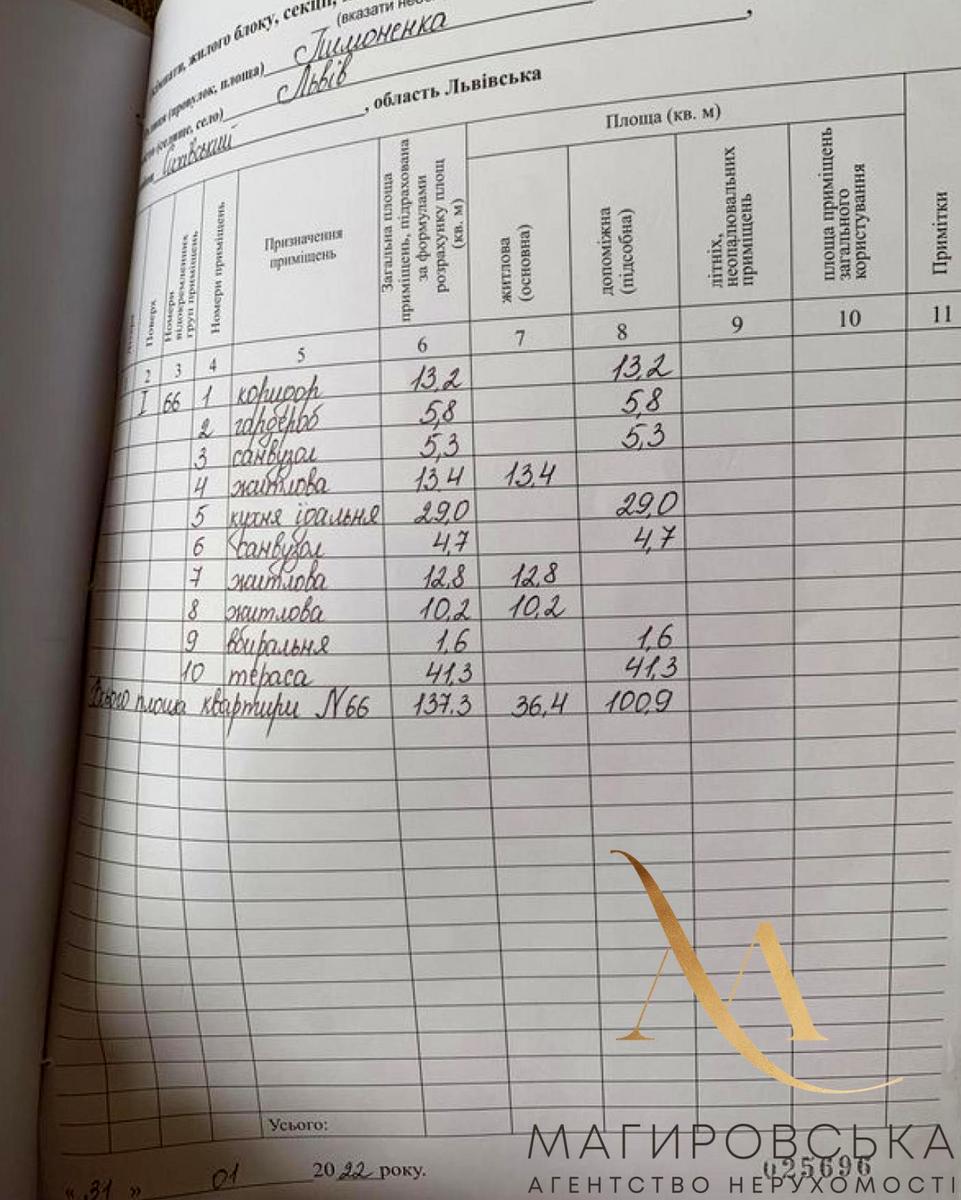 кімнати, жилого блоку, секції,
(вказати
(провулок, площа) Тимоненка ,
(селище, село) Львів
Сихівський , область Львівська
Поверх
Номери відокремлених груп приміщень
Номери приміщень
Призначення приміщень
Загальна площа приміщень, підрахована за формулами розрахунку площ (кв. м)
Площа (кв. м)
житлова (основна)
допоміжна (підсобна)
літніх, неопалювальних приміщень
площа приміщень загального користування
Примітки
2 3 4 5 6 7 8 9 10 11
I 66 1 коридор 13,2 13,2
2 гардероб 5,8 5,8
3 санвузол 5,3 5,3
4 житлова 13,4 13,4
5 кухня їдальня 29,0 29,0
6 санвузол 4,7 4,7
7 житлова 12,8 12,8
8 житлова 10,2 10,2
9 вбиральня 1,6 1,6
10 тераса 41,3 41,3
Всього площа квартири N66 137,3 36,4 100,9
Усього:
"31" 01 2022 року.
025696
МАГИРОВСЬКА
АГЕНТСТВО НЕРУХОМОСТІ